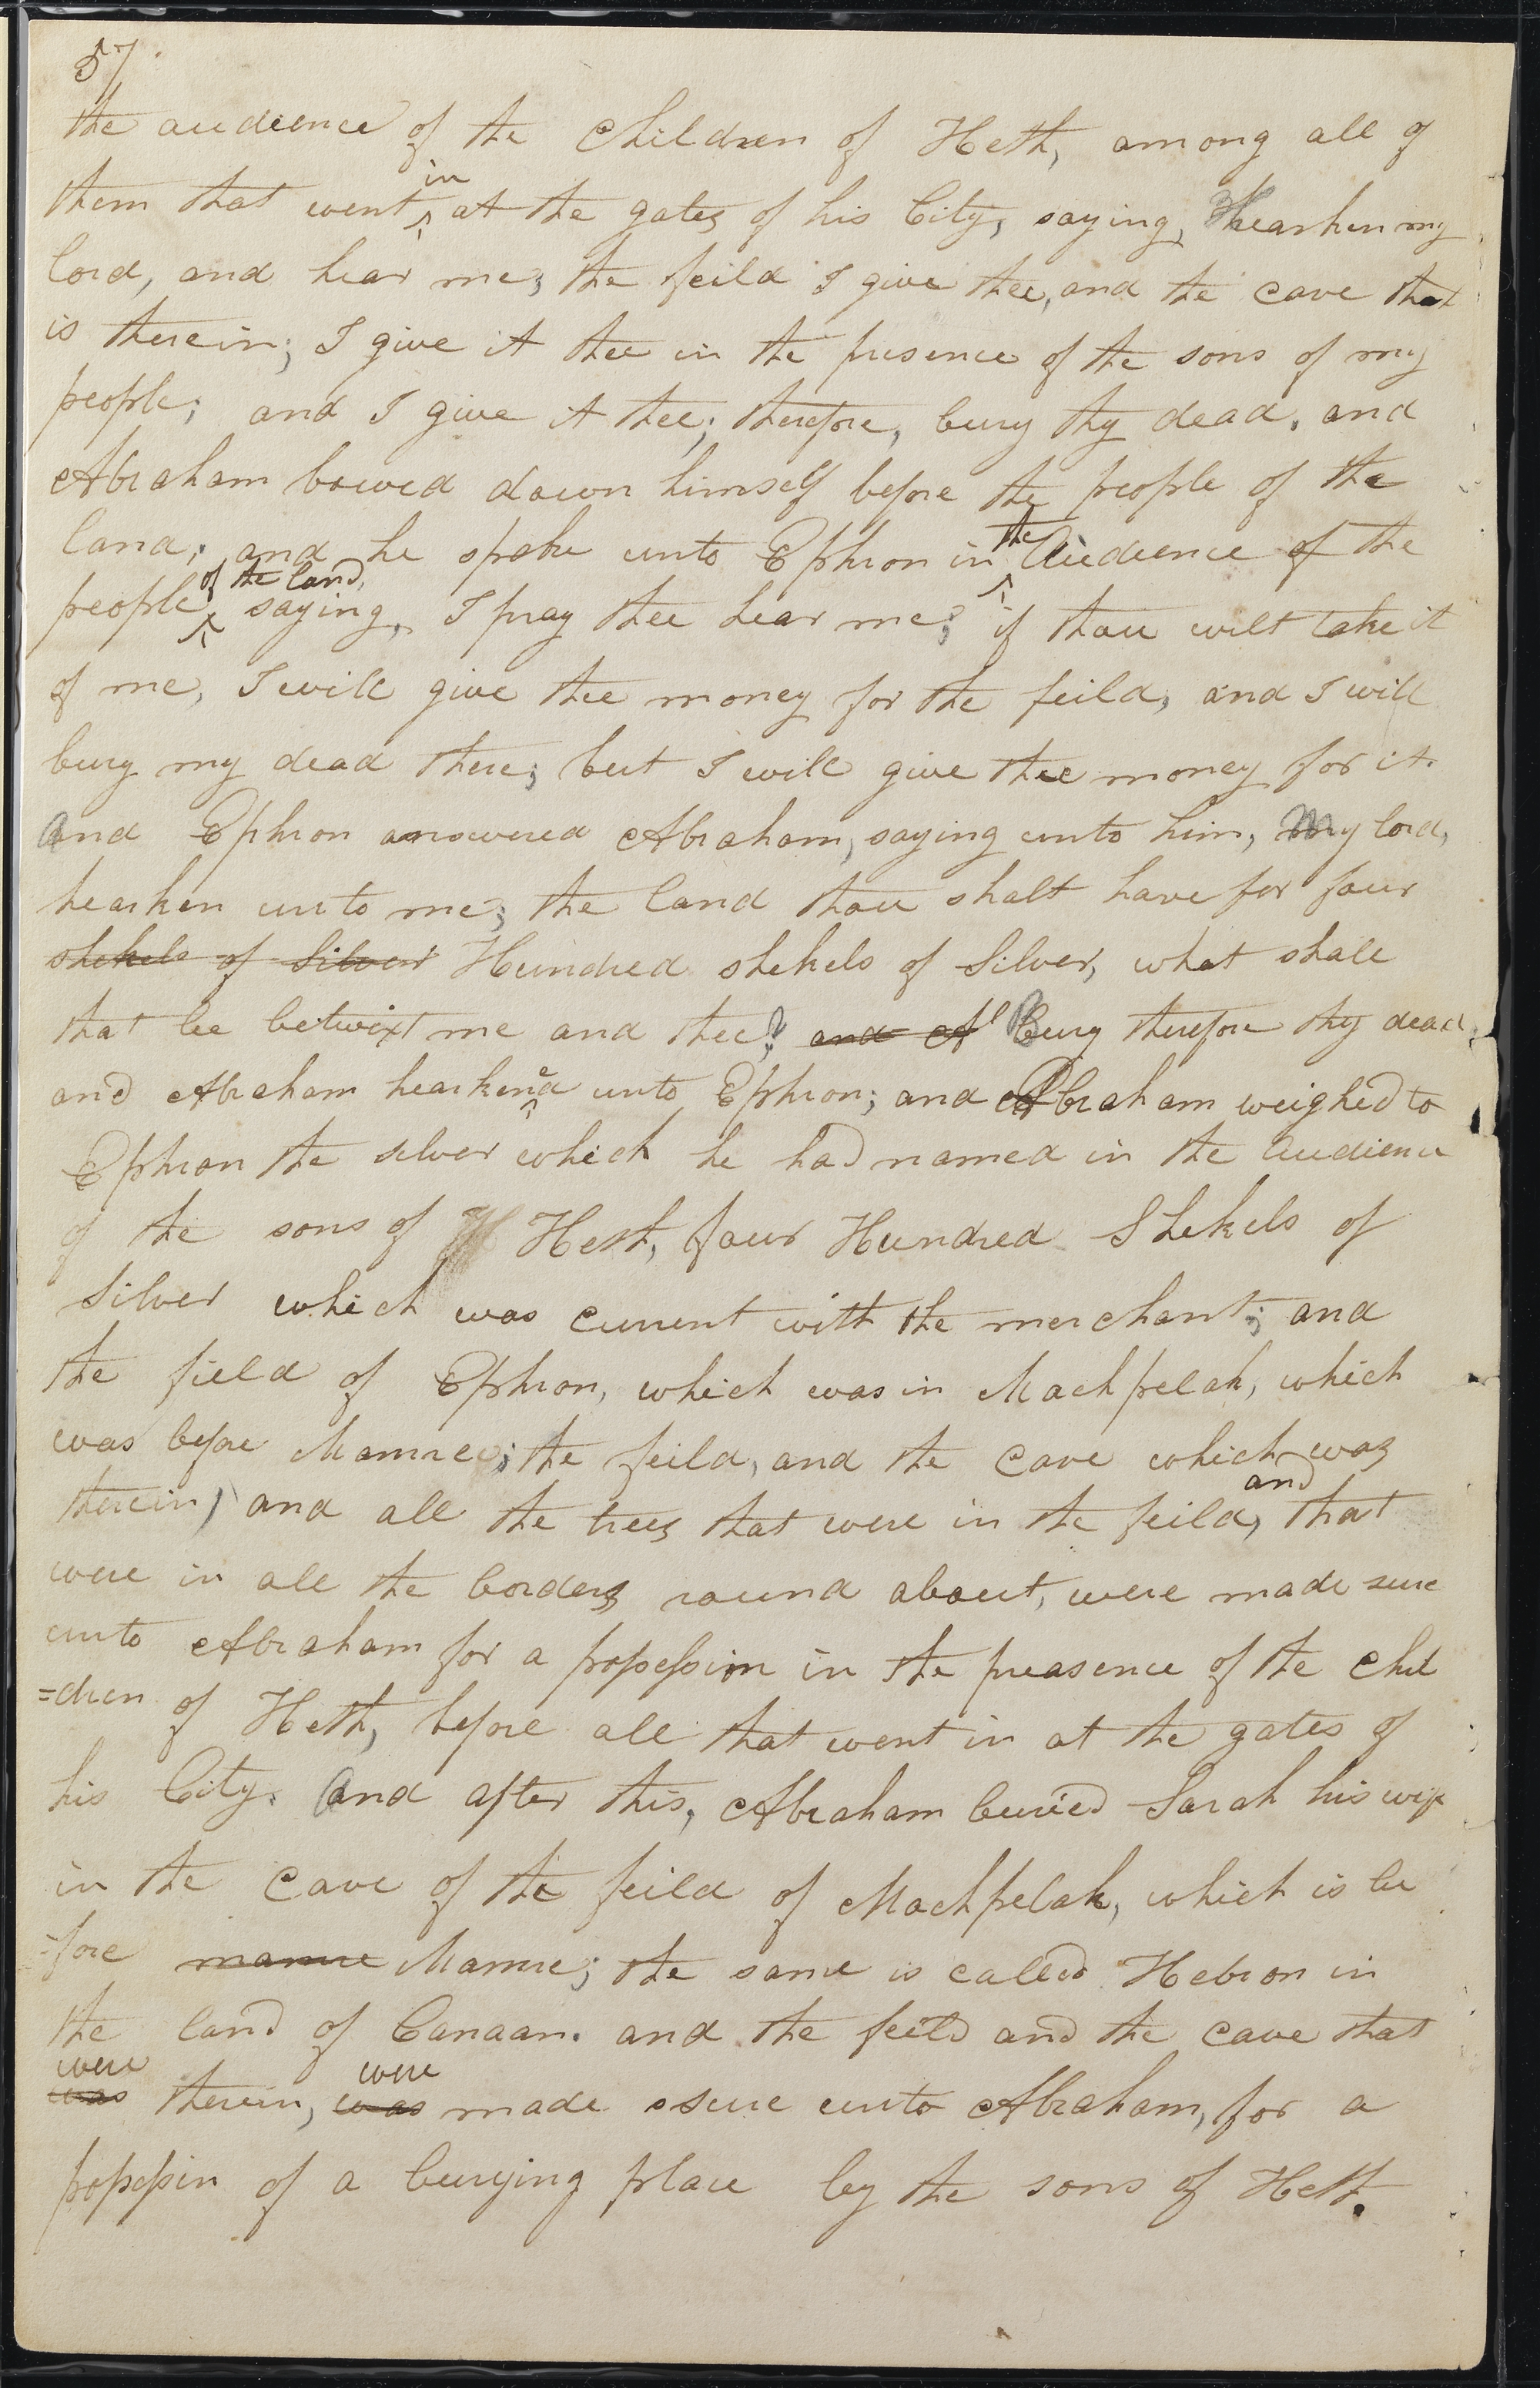 57
the audience of the Children of Heth, among all of
them that went in at the gates of his City, saying, hearken my
lord, and hear me; the feild I give thee, and the cave that
is therein; I give it thee in the presence of the sons of my
people; and I give it thee; therefore, bury thy dead. and
Abraham bowed down himself before the people of the
land; and he spoke unto Ephron in the Audience of the
people of the land, saying, I pray thee hear me; if thou wilt take it
of me, I will give thee money for the feild, and I will
bury my dead there; but I will give thee money for it.
And Ephron answered Abraham, saying unto him, My lord,
hearken unto me; the land thou shalt have for four
shekels of Silver Hundred shekels of Silver, what shall
that be betwixt me and thee? and A Bury therefore thy dead,
and Abraham hearkened unto Ephron; and Abraham weighed to
Ephron the silver which he had named in the Audience
of the sons of H Heth, four Hundred Shekels of
Silver which was current with the merchant; and
the field of Ephron, which was in Machpelah, which
was before Mamre; the feild, and the Cave which was
therein, and all the trees that were in the feild, and that
were in all the borders round about, were made sure
unto Abraham for a possession in the preasence of the Chil
=dren of Heth, before all that went in at the gates of
his City. And after this, Abraham buried Sarah his wife
in the Cave of the feild of Machpelah, which is be
=fore mamre Mamre; the same is called Hebron in
the land of Canaan. and the feild and the cave that
were was therein, were was made ssure unto Abraham, for a
possessin of a burying place by the sons of Heth.